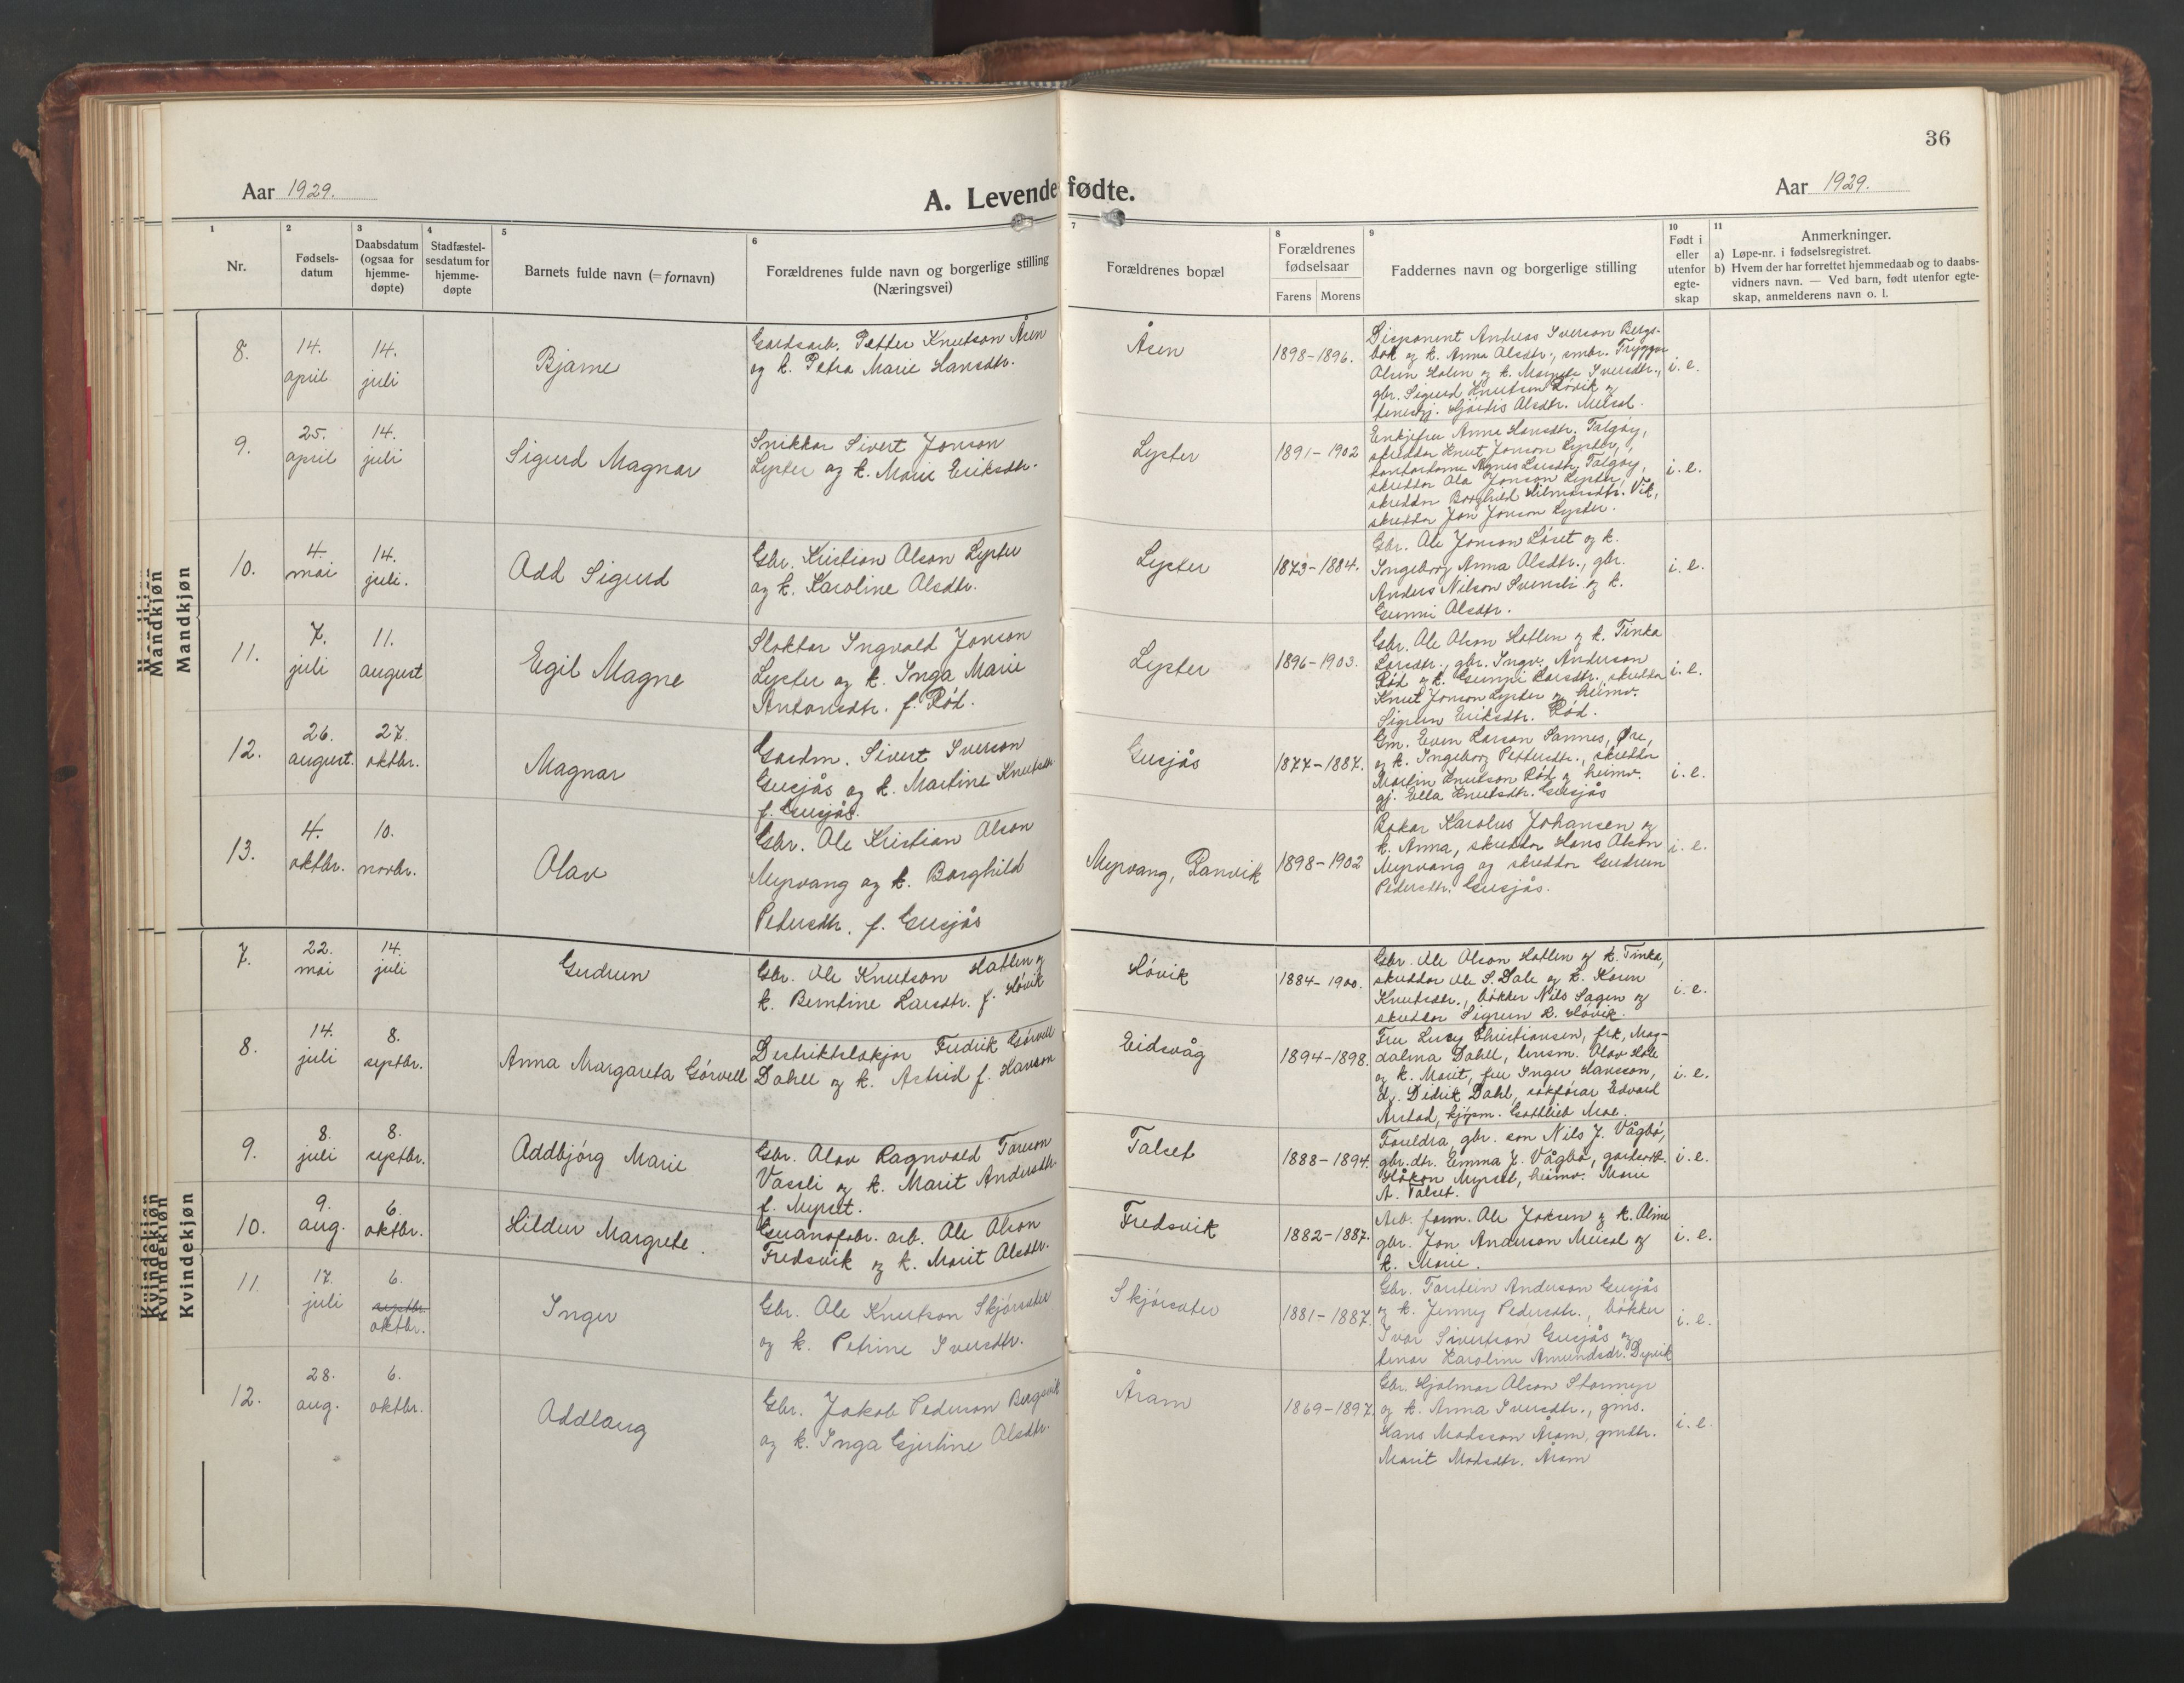 36
Aar 1929.
A. Levende fødte.
Aar 1929.
1
Nr.
2
Fødsels-
datum
3
Daabsdatum
(ogsaa for
hjemme-
døpte)
4
Stadfæstel-
sesdatum for
hjemme-
døpte
5
Barnets fulde navn (=fornavn)
6
Forældrenes fulde navn og borgerlige stilling
(Næringsvei)
7
Forældrenes bopæl
8
Forældrenes
fødselsaar
Farens Morens
9
Faddernes navn og borgerlige stilling
10
Født i
eller
utenfor
egte-
skap
11
Anmerkninger.
a) Løpe-nr. i fødselsregistret.
b) Hvem der har forrettet hjemmedaab og to daabs-
vidners navn. — Ved barn, født utenfor egte-
skap, anmelderens navn o. l.
Mandkjøn
Mandkjøn
8.
14.
april
14.
juli
Bjarne
Gardsarb. Petter Knutson Åsen
og k. Petra Marie Hansdtr.
Åsen
1898-1896.
Disponent Andreas Iverson Bergs-
bak og k. Anna Olsdtr., smbr. Tryggve
Olsen Holen og k. Margete Iversdtr.,
gbr. Sigurd Knutson Høvik og
tenestgj. Hjördis Olsdtr. Meisal.
i. e.
9.
25.
april
14.
juli
Sigurd Magnar
Snikkar Sivert Jonson
Lyster og k. Marie Eriksdtr.
Lyster
1891-1902
Enkjefru Anne Hansdtr. Talgøy,
skreddar Knut Jonson Lyster,
kontordame Agnes Larsdtr. Talgøy,
skreddar Ola Jonson Lyster,
skreddar Borghild Hilmarsdtr. Vik,
skreddar Jon Jonson Lyster.
i. e.
10.
4.
mai
14.
juli.
Odd Sigurd
Gbr. Kristian Olson Lyster
og k. Karoline Olsdtr.
Lyster
1873-1884.
Gbr. Ole Jonson Löset og k.
Ingeborg Anna Olsdtr., gbr.
Anders Nilson Svensli og k.
Gunni Olsdtr.
i. e.
11.
7.
juli
11.
august
Egil Magne
Slaktar Ingvald Jonson
Lyster og k. Inga Marie
Antonsdtr. f. Röd.
Lyster
1896-1903.
Gbr. Ole Olson Hatlen og k. Tinka
Larsdtr., gbr. Ingv. Anderson
Röd og k. Gunni Larsdtr., skreddar
Knut Jonson Lyster og heimv.
Sigrun Eriksdtr. Röd.
i. e.
12.
26.
august.
27.
oktbr.
Magnar
Gardm. Sivert Iverson
Gusjås og k. Martine Knutsdtr.
f. Gusjås.
Gusjås
1877-1887.
Gm. Even Larson Sannes, Øre,
og k. Ingeborg Pettersdtr., skreddar
Martin Knutson Röd og heimv.
gj. Ella Knutsdtr. Gusjås
i. e.
13.
4.
oktbr.
10.
novbr.
Olav
Gbr. Ole Kristian Olson
Myrvang og k. Borghild
Pedersdtr. f. Gusjås
Myrvang, Ranvik
1898-1902
Bakar Karolus Johansen og
k. Anna, skreddar Hans Olson
Myrvang og skreddar Gudrun
Pedersdtr. Gusjås.
i. e.
Kvindekjøn
Kvindekjøn
Kvindekjøn
7.
22.
mai
14.
juli
Gudrun
Gbr. Ole Knutson Hatlen og
k. Berntine Larsdtr. f. Hövik
Hövik
1884-1900.
Gbr. Ole Olson Hatlen og k. Tinka,
skreddar Ole S. Dale og k. Karen
Knutsdtr., bökker Nils Sagen og
skreddar Sigrun L. Hövik.
i. e.
8.
14.
juli
8.
septbr.
Anna Margareta Görvell
Destriktslækjar Fredrik Görvell
Dahll og k. Astrid f. Hanson
Eidsvåg
1894-1898.
Fru Lucy Christiansen, frk. Mag-
dalena Dahll, lensm. Olav Hole
og k. Marit, fru Inger Hansson,
dr. Didrik Dahl, sakförar Edvard
Arstad, kjöpm. Gottlieb Moe.
i. e.
9.
8.
juli
8.
septbr.
Oddbjörg Marie
Gbr. Olav Ragnvald Toreson
Vassli og k. Marit Andersdtr.
f. Myrset.
Talset
1888-1894.
Foreldra, gbr. son Nils J. Vågbö,
gbr. dtr. Emma J. Vågbö, gardsarb.
Håkon Myrset, heimv. Marie
A. Talset.
i. e.
10.
9.
aug.
6.
oktbr.
Hildur Margrete.
Guanofabr. arb. Ole Olson
Fredsvik og k. Marit Olsdtr.
Fredsvik
1882-1887.
Arb. form. Ole Joksen og k. Oline
gbr. Jon Anderson Meisal og
k. Marie.
i. e.
11.
17.
juli
6.
septbr.
oktbr.
Inger
Gbr. Ole Knutson Skjörsater
og k. Petrine Iversdtr.
Skjörsater
1881-1887.
Gbr. Torstein Anderson Gusjås
og k. Jenny Pedersdtr., bökker
Ivar Sivertson Gusjås og
tenar Karoline Amundsdr. Dyrvik
i. e.
12.
28.
aug.
6.
oktbr.
Oddlaug
Gbr. Jakob Pederson Bergsvik
og k. Inga Gjertine Olsdtr.
Åram
1869-1897.
Gbr. Hjalmar Olson Stormyr
og k. Anna Iversdtr., gms.
Hans Madsson Åram, gmdtr.
Marit Madsdtr. Åram
i. e.